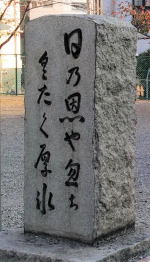 日乃恩や忽ち
くだく厚氷